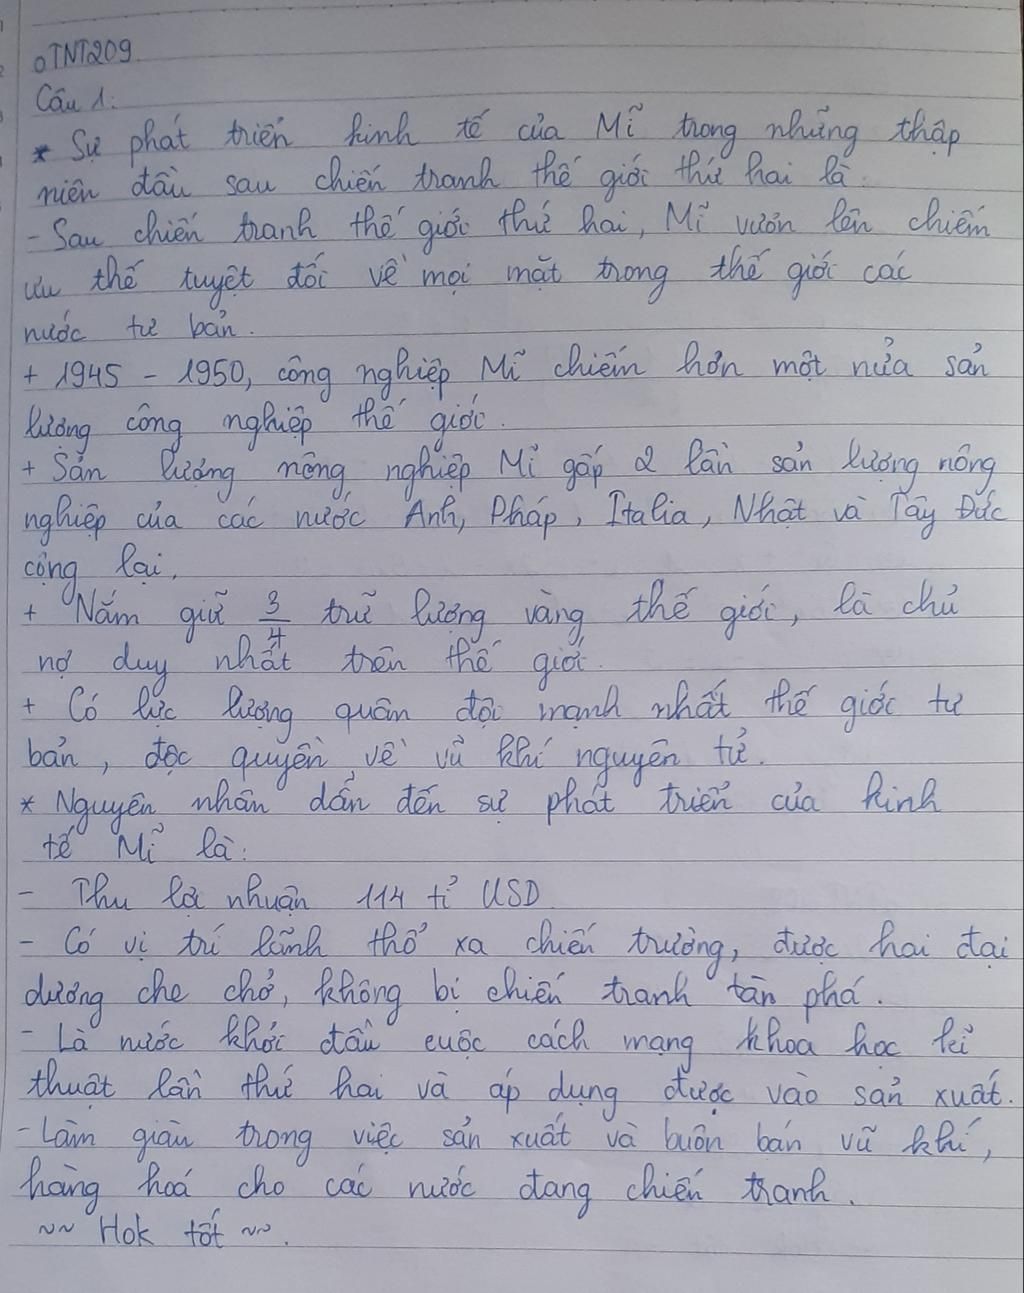 oTNT209
Câu 1:
* Sự phát triển kinh tế của Mĩ trong những thập
niên đầu sau chiến tranh thế giới thứ hai là:
- Sau chiến tranh thế giới thứ hai, Mĩ vươn lên chiếm
ưu thế tuyệt đối về mọi mặt trong thế giới các
nước tư bản.
+ 1945 - 1950, công nghiệp Mĩ chiếm hơn một nửa sản
lượng công nghiệp thế giới.
+ Sản lượng nông nghiệp Mĩ gấp 2 lần sản lượng nông
nghiệp của các nước Anh, Pháp, Italia, Nhật và Tây Đức
cộng lại.
+ Nắm giữ 3/4 trữ lượng vàng thế giới, là chủ
nợ duy nhất trên thế giới.
+ Có lực lượng quân đội mạnh nhất thế giới tư
bản, độc quyền về vũ khí nguyên tử.
* Nguyên nhân dẫn đến sự phát triển của kinh
tế Mĩ là:
- Thu lợi nhuận 114 tỉ USD
- Có vị trí lãnh thổ xa chiến trường, được hai đại
dương che chở, không bị chiến tranh tàn phá.
- Là nước khởi đầu cuộc cách mạng khoa học kĩ
thuật lần thứ hai và áp dụng được vào sản xuất.
- Làm giàu trong việc sản xuất và buôn bán vũ khí,
hàng hoá cho các nước đang chiến tranh.
~~ Hok tốt ~~.